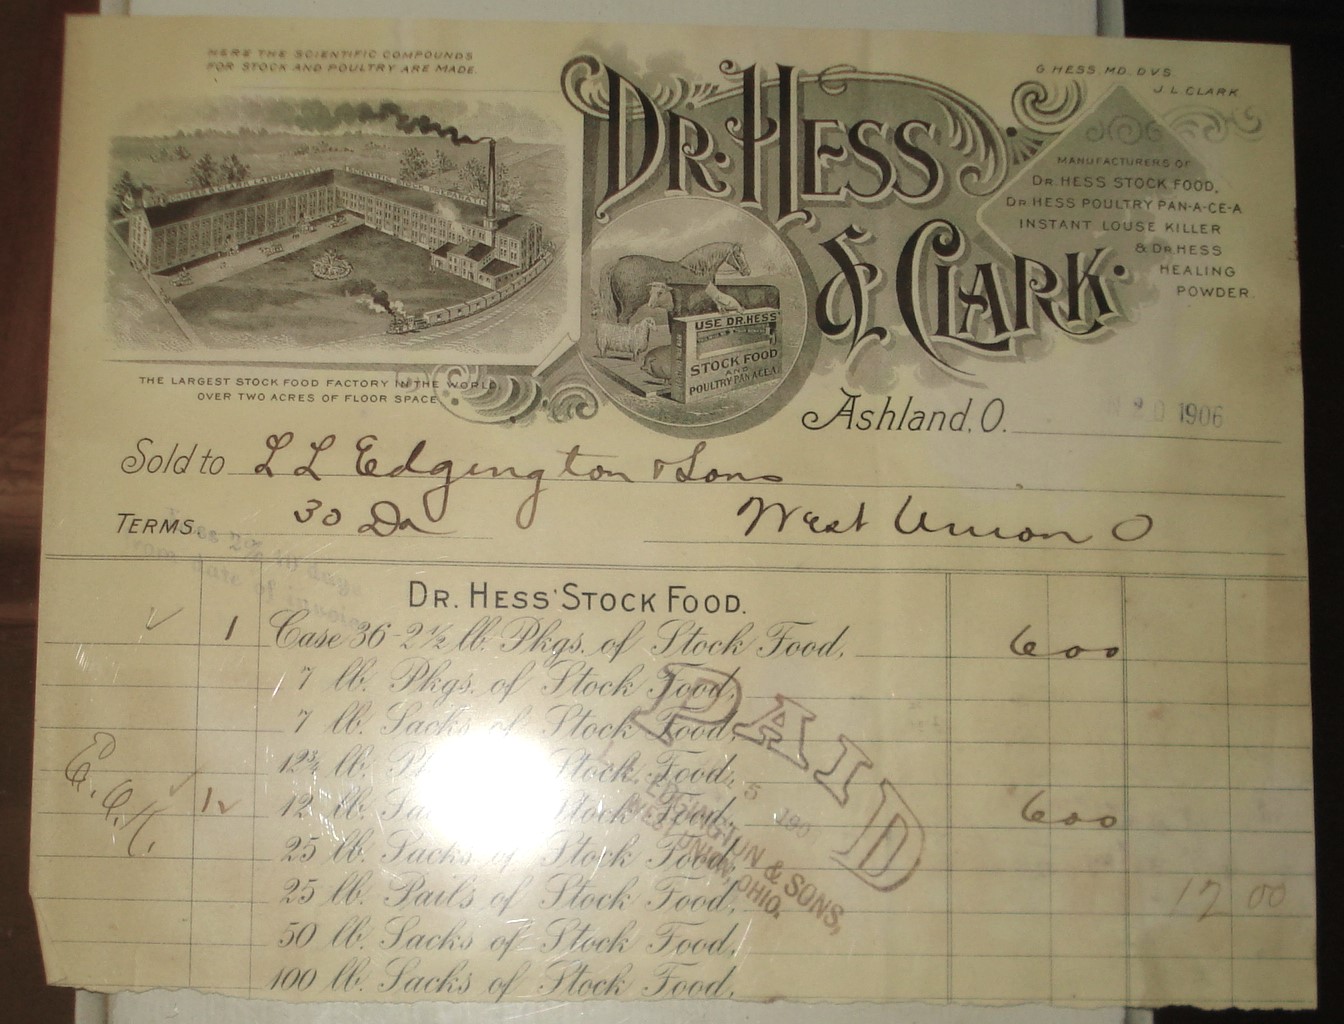 HERE THE SCIENTIFIC COMPOUNDS
FOR STOCK AND POULTRY ARE MADE.
THE LARGEST STOCK FOOD FACTORY IN THE WORLD
OVER TWO ACRES OF FLOOR SPACE.
DR. HESS
& CLARK.
USE DR. HESS'
STOCK FOOD
AND
POULTRY PAN-A-CE-A
G. HESS. M.D. D.V.S.
J. L. CLARK
MANUFACTURERS OF
DR. HESS STOCK FOOD,
DR HESS POULTRY PAN-A-CE-A
INSTANT LOUSE KILLER
& DR HESS
HEALING
POWDER.
Ashland, O. 20 1906
Sold to L L Edgington & Sons
TERMS 30 Da West Union O
2% 10 days
from date of invoice
DR. HESS' STOCK FOOD.
1 Case 36 - 2 1/2 lb. Pkgs. of Stock Food, 6 00
7 lb. Pkgs. of Stock Food,
7 lb. Sacks of Stock Food,
12 3/4 lb. Stock Food,
12 lb. Stock Food, 6 00
25 lb. Sacks of Stock Food,
25 lb. Pails of Stock Food, 12 00
50 lb. Sacks of Stock Food,
100 lb. Sacks of Stock Food,
PAID
5 190
EDGINGTON & SONS,
WEST UNION, OHIO.